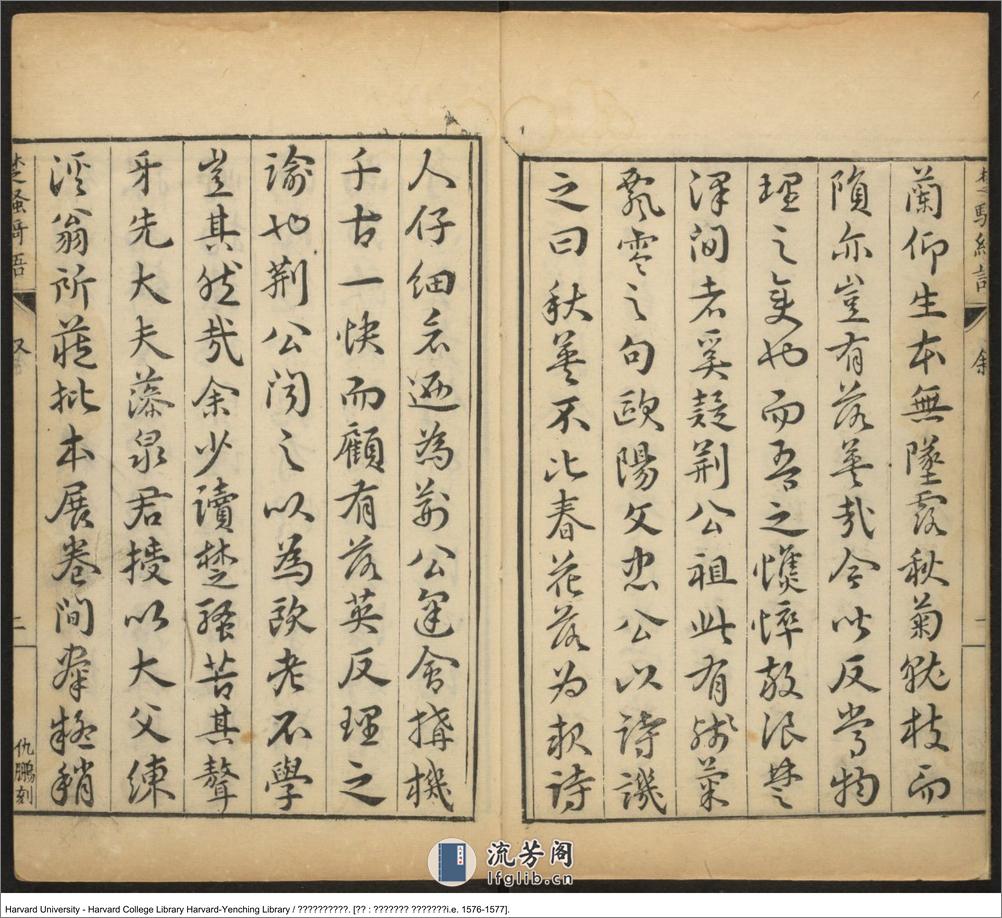 蘭仰生本無墜露秋菊就枝而
隕亦豈有落英哉今以反常物
理之變也而吾之憔悴放浪楚
澤間者奚疑荊公祖此有殘菊
飄零之句歐陽文忠公以詩譏
之曰秋英不比春花落為報詩
人仔細看遂為荊公運會搆機
千古一快而顧有落英反理之
諭也荊公聞之以為歐老不學
豈其然哉余少讀楚騷苦其聱
牙先大夫藻泉君授以大父練
溪翁所藏批本展卷間拳耗稍
楚騷綺語
二
仇鵬刻
流芳阁
lfglib.cn
Harvard University - Harvard College Library Harvard-Yenching Library / ??????????. [?? : ??????? ???????i.e. 1576-1577].